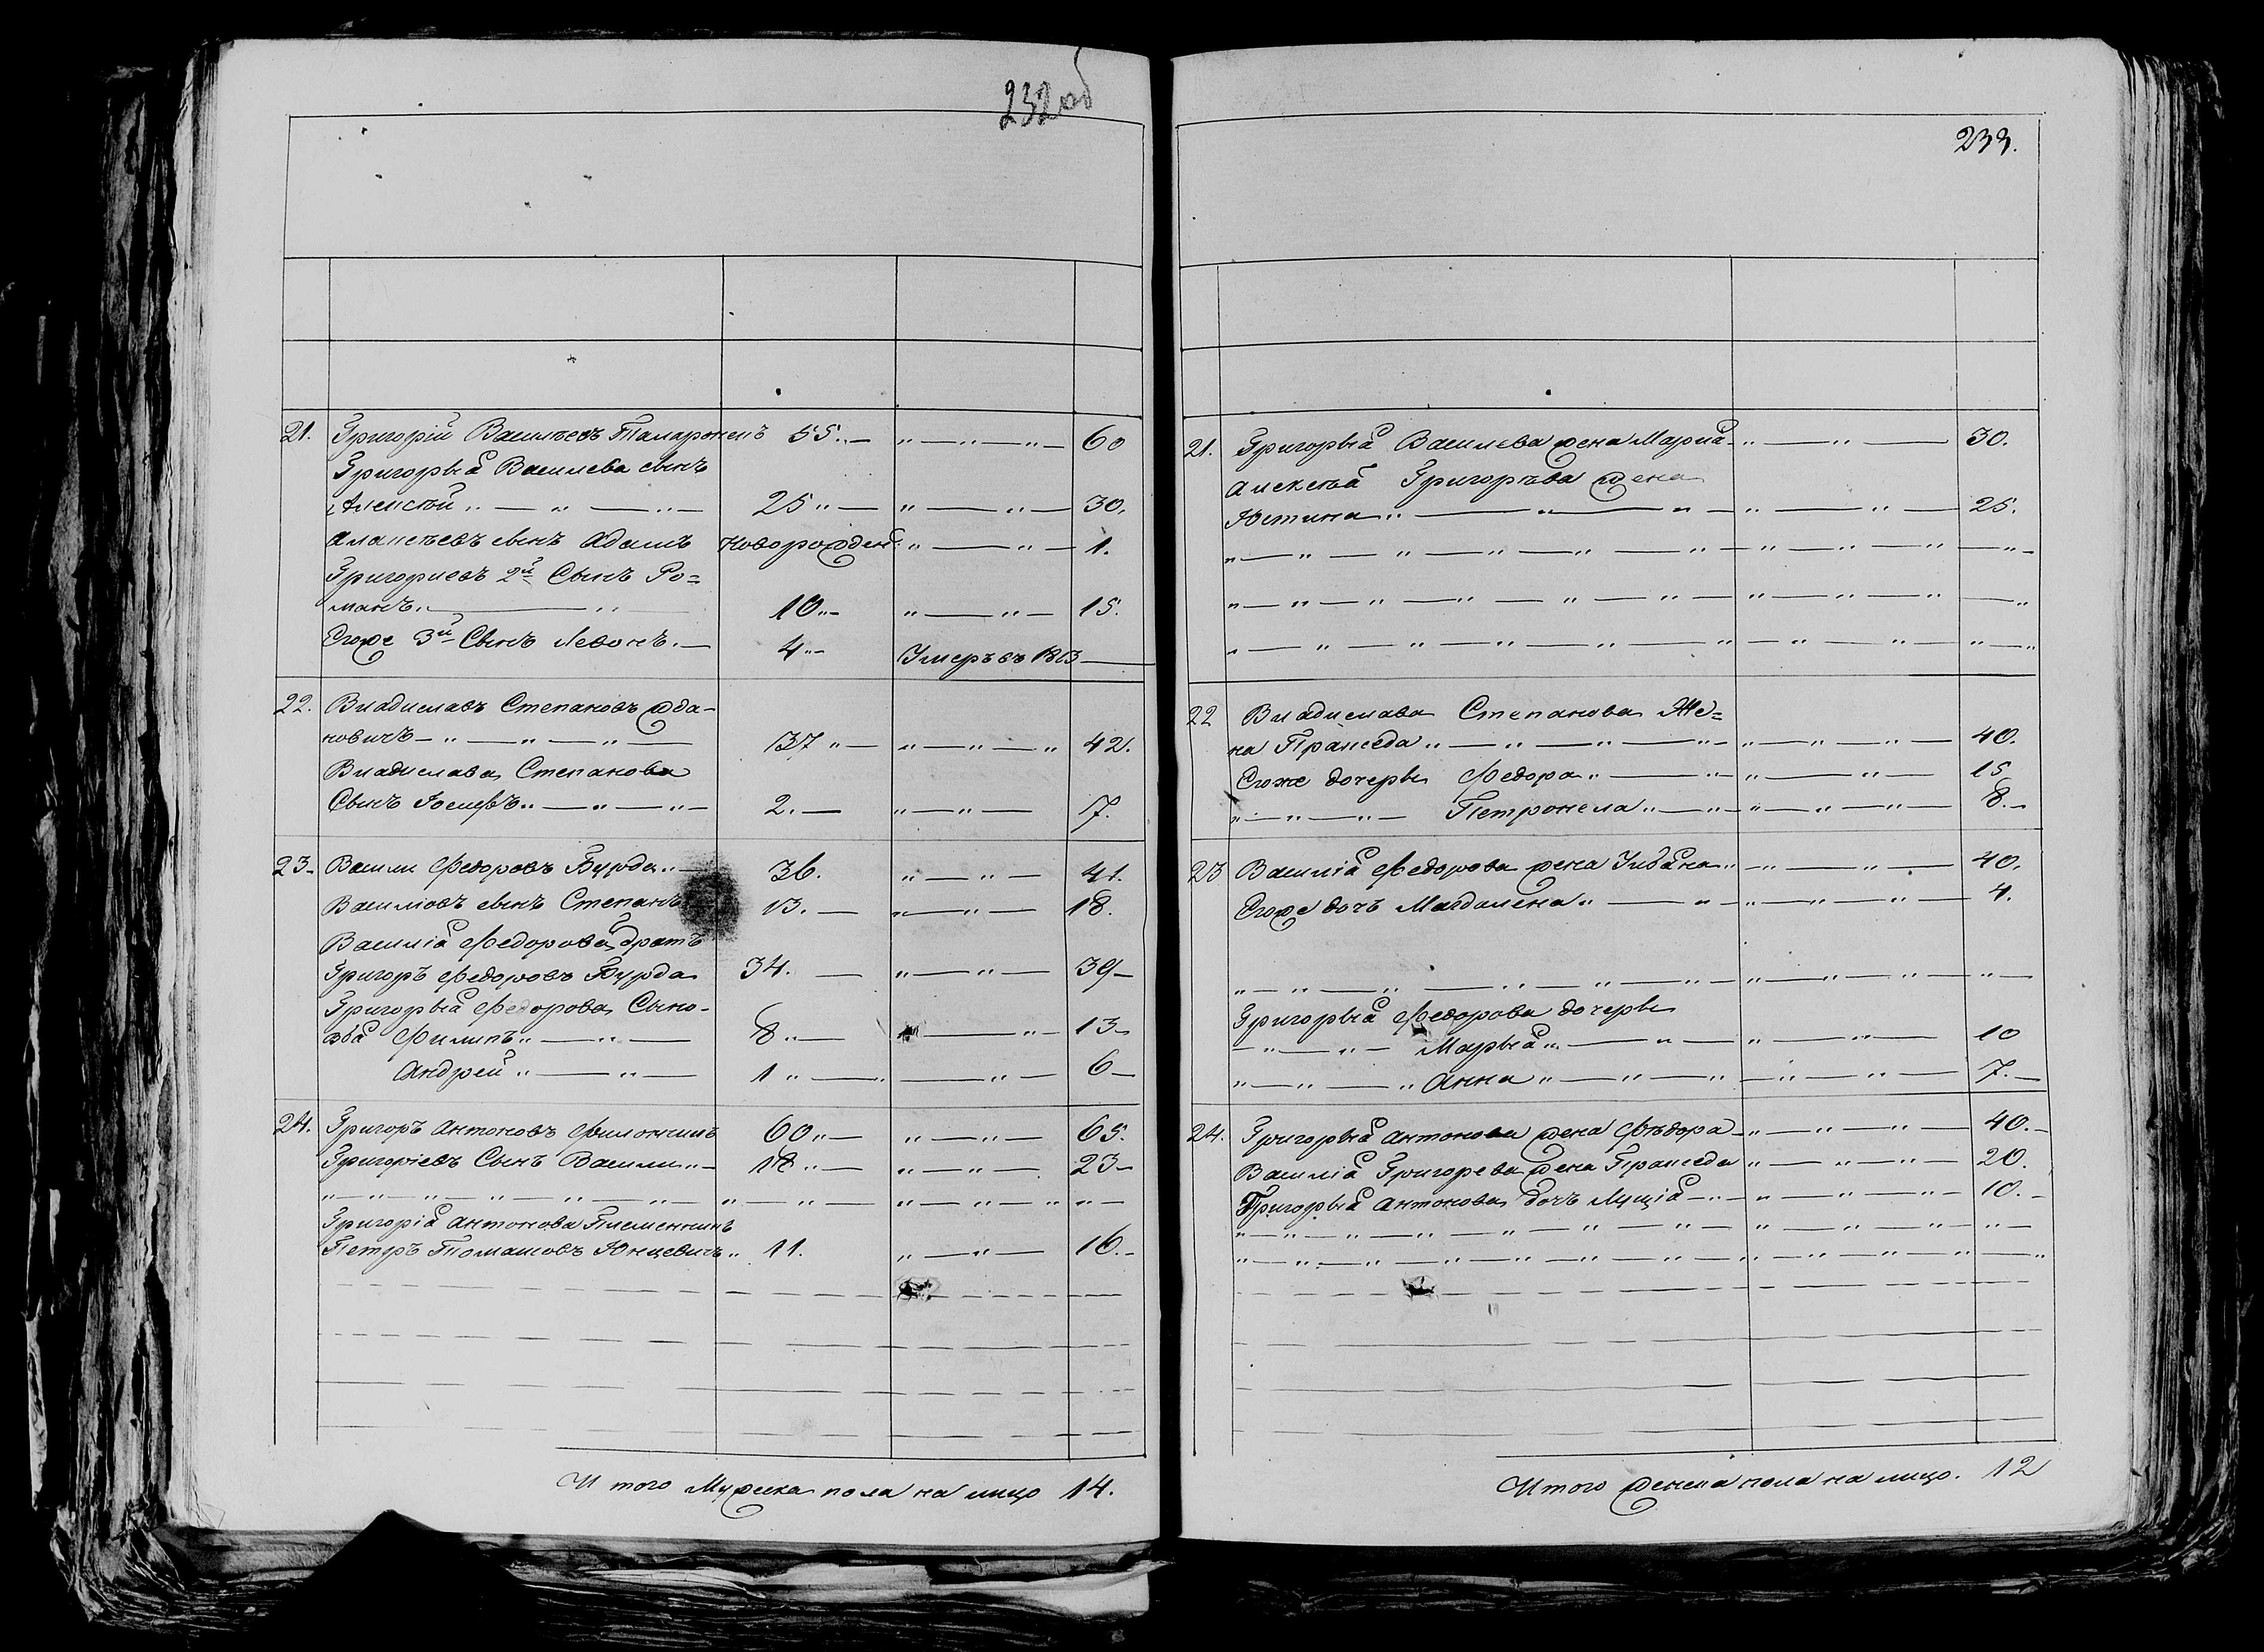 232 об
21. Григорій Васильевъ Таларженъ 55. 60
Григорыя Васильева сынъ
Алексѣй 25 30.
Алексѣевъ сынъ Адамъ Новорожден. 1.
Григориевъ 2й Сынъ Ро=
манъ. 10 15.
Егоже 3й Сынъ Левонъ. 4 Умеръ въ 1813
22. Владиславъ Степановъ Жда-
новичъ 37 42.
Владислава Степанова
Сынъ Іосифъ 2. 7.
23. Васили Федоровъ Бурда 36. 41.
Василіовъ сынъ Степанъ 13. 18.
Василія Федорова братъ
Григоръ Федоровъ Бурда 34. 39
Григорыя Федорова Сыно-
вья Филипъ 8 13
Андрей 1 6
24. Григоръ Антоновъ 60 65.
Григоріевъ Сынъ Васили 18 23
Григорія Антонова Племенникъ
Петръ Томашовъ Юнцевичъ 11. 16.
И того Мужска пола на лицо 14.
233.
21. Григорыя Василева жена Марыя 30.
Алексѣя Григорьва жена
Юстина 25.
22 Владислава Степанова Же=
на Пракседа 40.
Егоже дочеры Федора 15
Петронела 8.
23 Василія Федорова жена Ульяна 40.
Егоже дочъ Магдалена 4.
Григорыя Федорова дочеры
Марыя 10
Анна 7.
24. Григорыя Антонова жена Фѣдора 40.
Василія Григорева жена Пракседа 20.
Григорыя Антонова дочъ Луція 10.
Итого женска пола на лицо. 12